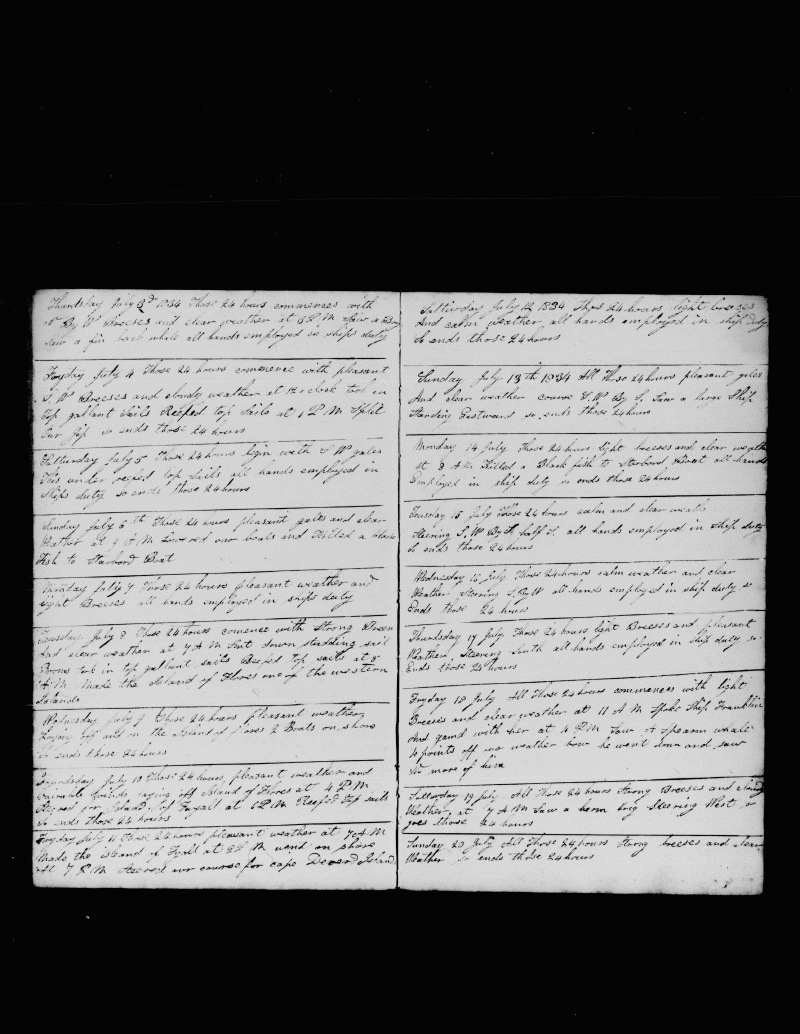 Thursday July 3d 1834 Those 24 hours commences with
By W Breeses and clear weather at 8 P.M. Saw a
Saw a fin back whale all hands employed in ships duty
Fryday July 4 Those 24 hours commence with pleasant
S. W Breeses and cloudy weather at 12 oclock took in
Top gallant Sails Reefed top Sails at 1 P M Split
Our Jip so ends those 24 hours
Satturday July 5 Those 24 hours begin with S W gales
This under reefed top Sails all hands employed in
Ships duty so ends those 24 hours
Sunday July 6th Those 24 hours pleasant gales and clear
Wather at 9 A M Lowered our boats and Killed a black
fish to Starbord Boat
Munday July 7 Those 24 hours pleasant weather and
light Breeses all ends employed in ships duty
Teusday July 8 Those 24 hours comence with Strong Breese
And clear weather at 7 A M Sent down studding sail
Booms took in top gallant sails Reefed top sails at 5
A M Made the Island of Flores one of the western
Islands
Wednesday July 9 Those 24 hours pleasant weather
Laying off and on the Island of Flores 2 Boats on shore
So ends those 24 hours
Thursday July 10 Those 24 hours pleasant weather and
winds laying off Island of Flores at 4 P M
Steered for Island of Fayall at 6 P.M. Reefed top sails
So ends those 24 hours
Fryday July 11 Those 24 hours pleasant weather at 7 A M
Made the island of Fyall at M went on shore
At 7 P.M. Steered our course for cape Deverd Island
Satturday July 12 1834 Thos 24 hours light breeses
And calm weather all hands employed in ship duty
So ends those 24 hours
Sunday July 13th 1834 All Those 24 hours pleasant gales
And clear weather course S.W By S. Saw a large Ship
Standing Eastward so ends those 24 hours
Monday 14 July Those 24 hours light breeses and clear weathe
at 8 A M Killed a Black fish to Starbord Boat all hands
Employed in ship duty so ends those 24 hours
Teusday 15 July Those 24 hours calm and clear weath
Steering S. W By S half S. all hands employed in Ship duty
So ends those 24 hours
Wednesday 16 July Those 24 hours calm weather and clear
Weather Steering S. By W all hands employed in ship duty so
Ends those 24 hours
Thursday 17 July Those 24 hours light Breeses and pleasant
Weather Steering South all hands employed in Ship duty so
Ends those 24 hours
Fryday 18 July All Those 24 hours commences with light
Breeses and clear weather at 11 A M Spoke Ship Franklin
And gamd with her at 4 P.M. Saw A Spearm whale
4 points off wo weather bow he went down and saw
No more of him
Satturday 19 July All Those 24 hours Strong Breeses and cloudy
Weather at 7 A M Saw a herm brig Steering West so
goes those 24 hours
Sunday 20 July All Those 24 hours Strong breeses and clear
Weather So ends those 24 hours